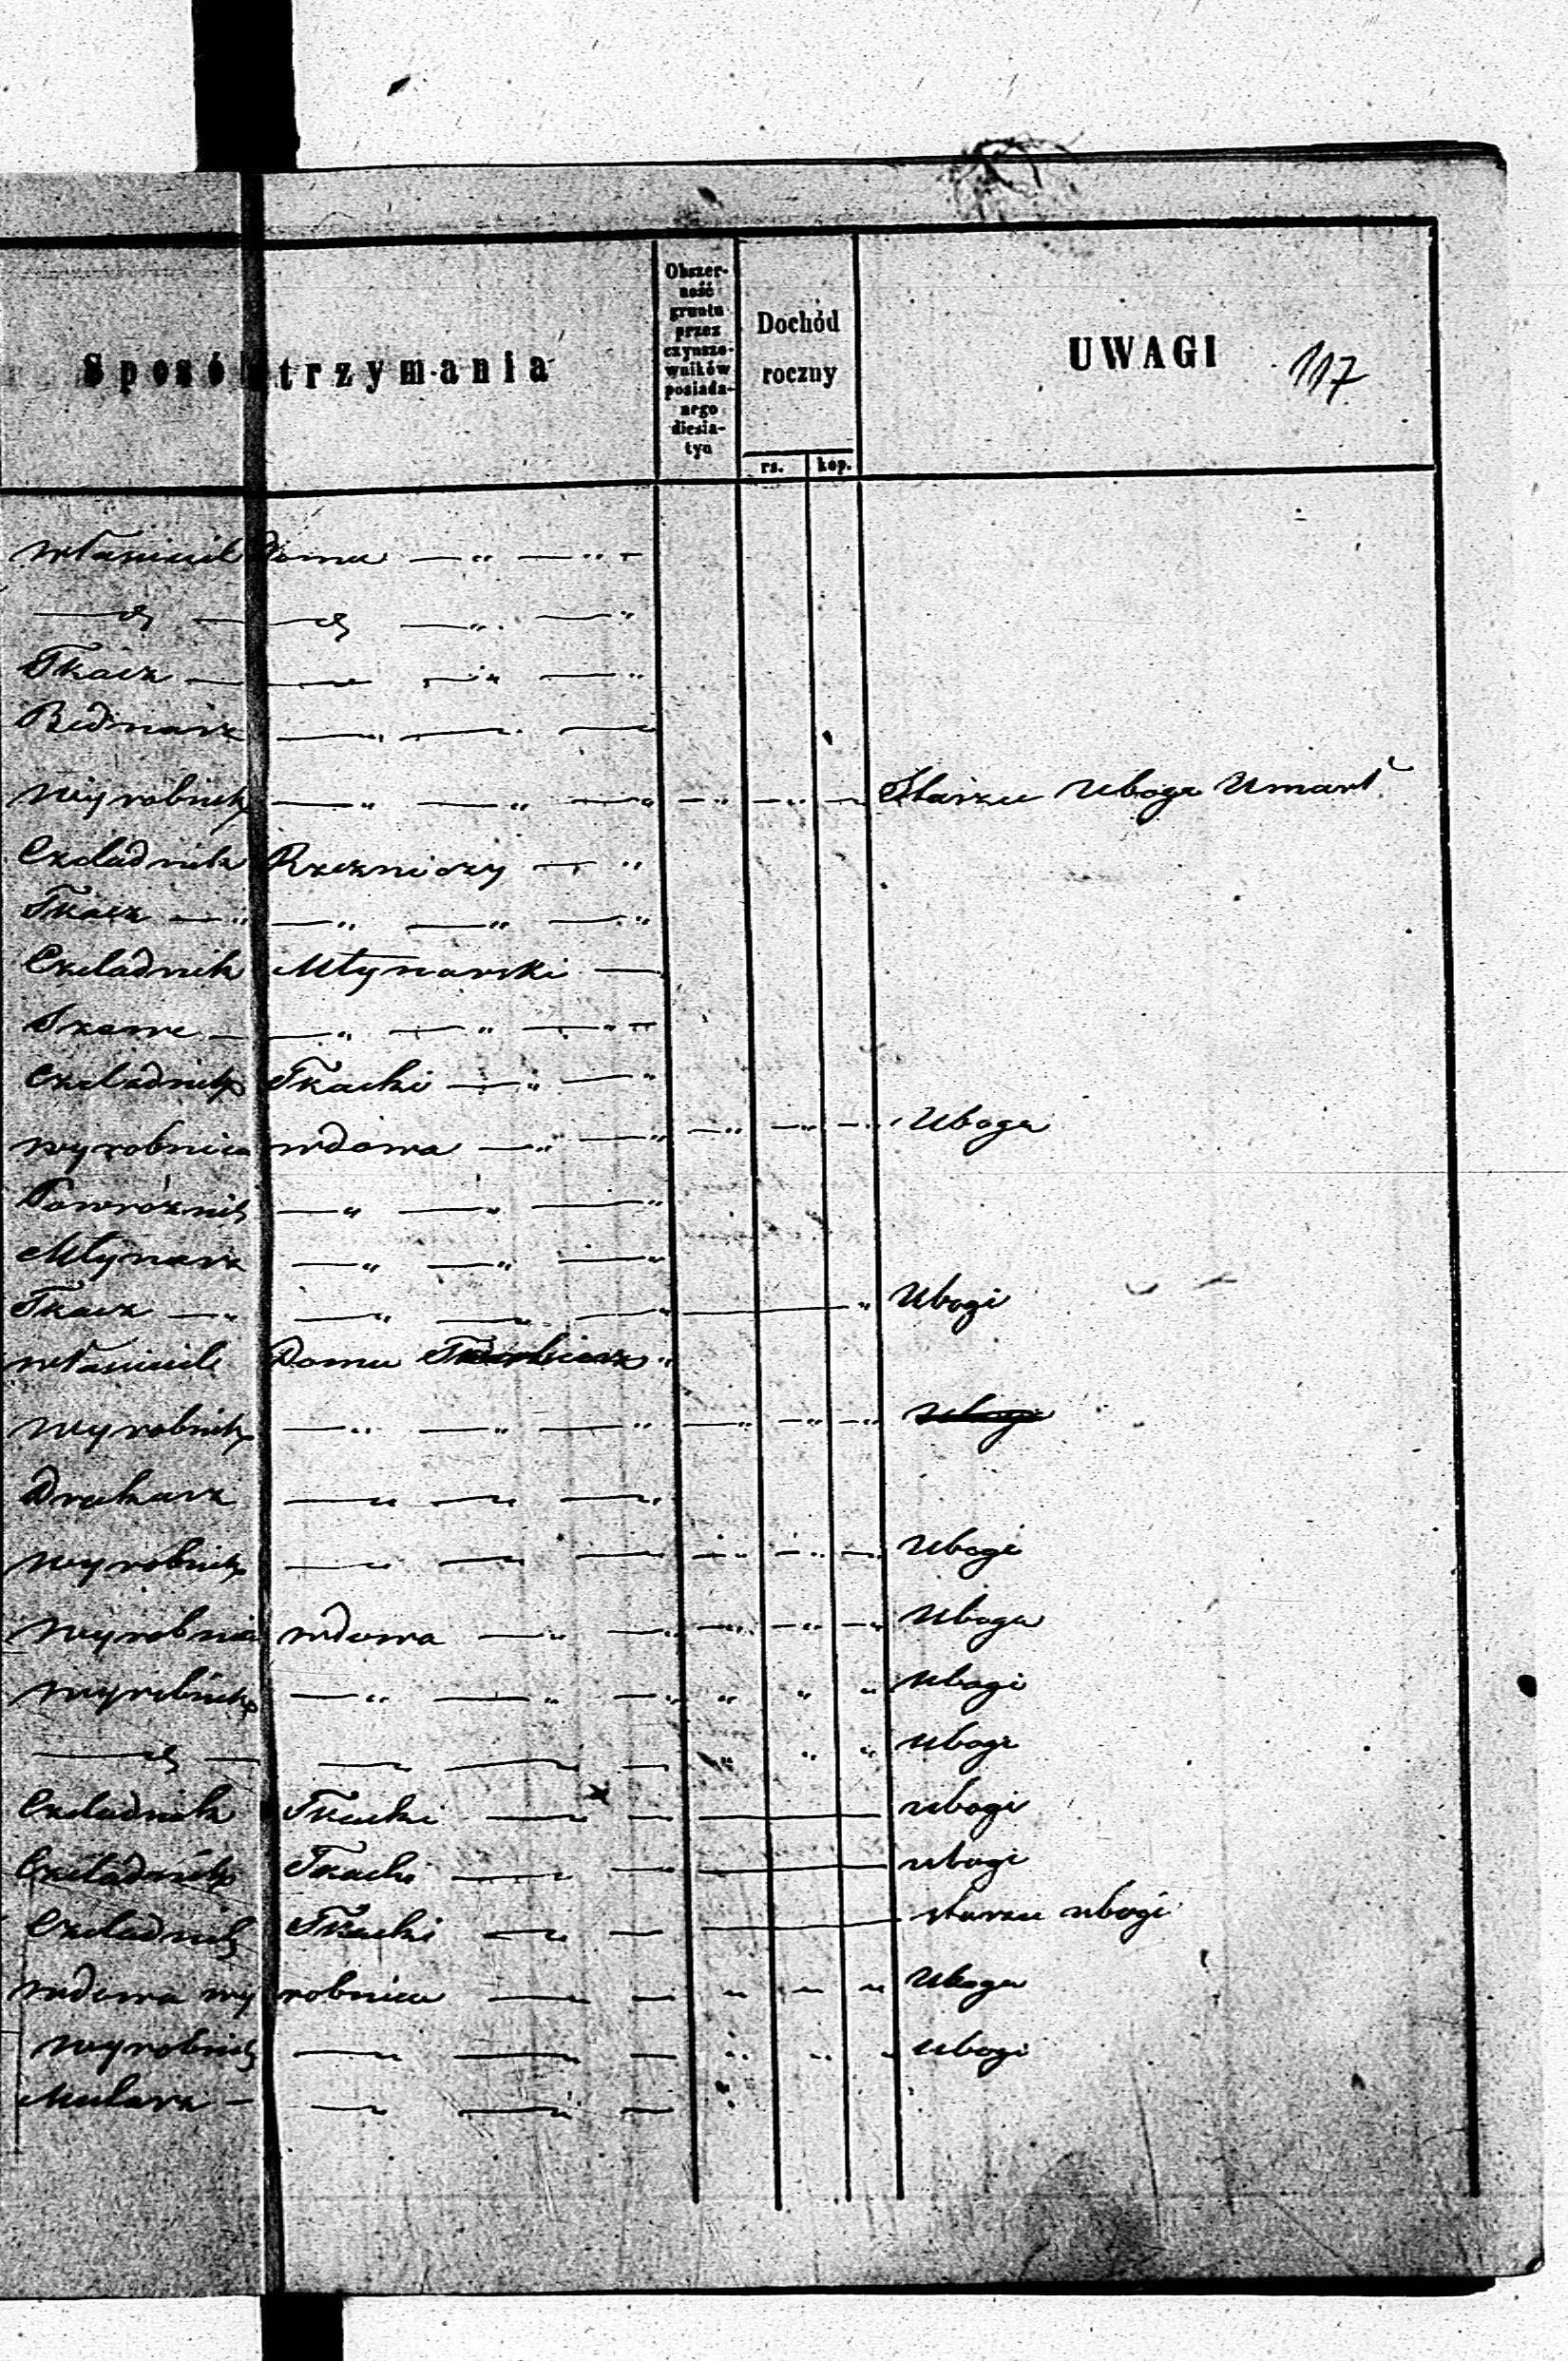 Sposób trzymania
Obszer-
ność
gruntu
przez
czynszo-
wników
posiada-
nego
diesia-
tyn
Dochód
roczny
rs. kop.
UWAGI 117
właściciel Domu — " — " —
— dt — dt — " — "
Tkacz — — — " — "
Bednarz — — —
Wyrobnik — " — " — " — " — " — Starzec Ubogi Umarł
Czeladnik Rzeźniczy — "
Tkacz — " — " — " — "
Czeladnik Młynarski —
— — " — " — " —
Czeladnik Tkacki — " — "
wyrobnica wdowa — " — " — " — " — " Uboga
Powróźnik — " — " — "
Młynarz — " — " — "
Tkacz — " — " — " — " — " Ubogi
właściciel Domu
Wyrobnik — " — " — " — " — " — " ubogi
Drukarz — " — " — "
Wyrobnik — " — " — — " — " — " Ubogi
Wyrobnica wdowa — " — " — " — " — " Uboga
Wyrobnik — " — " — " " " " ubogi
— dt — — " — — " " " ubogi
Czeladnik Tkacki — " — — ubogi
Czeladnik Tkacki — " — — ubogi
Czeladnik Tkacki — " — — starzec ubogi
wdowa wyrobnica — " — " " " Uboga
wyrobnik — " — " — " " " ubogi
Mularz — — " — " —